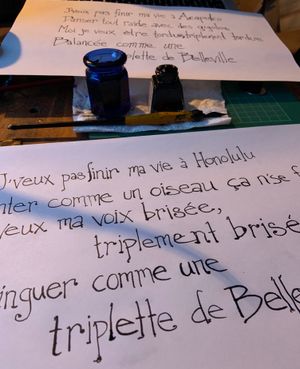 J'veux pas finir ma vie à Acapulco
Danser tout raide avec des gigolos
Moi je veux être tordue, triplement tordue
Balancée comme une
plette de Belleville
J'veux pas finir ma vie à Honolulu
nter comme un oiseau ça n'se f
veux ma voix brisée,
triplement brisé
inguer comme une
triplette de Belle